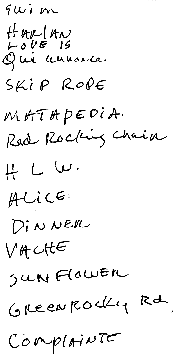 SWIM
HARLAN
LOVE IS
SKIP ROPE
MATAPEDIA.
Red Rocking Chair
H L W.
ALICE
DINNER
VACHE
SUNFLOWER
GREENROCKY Rd.
COMPLAINTE